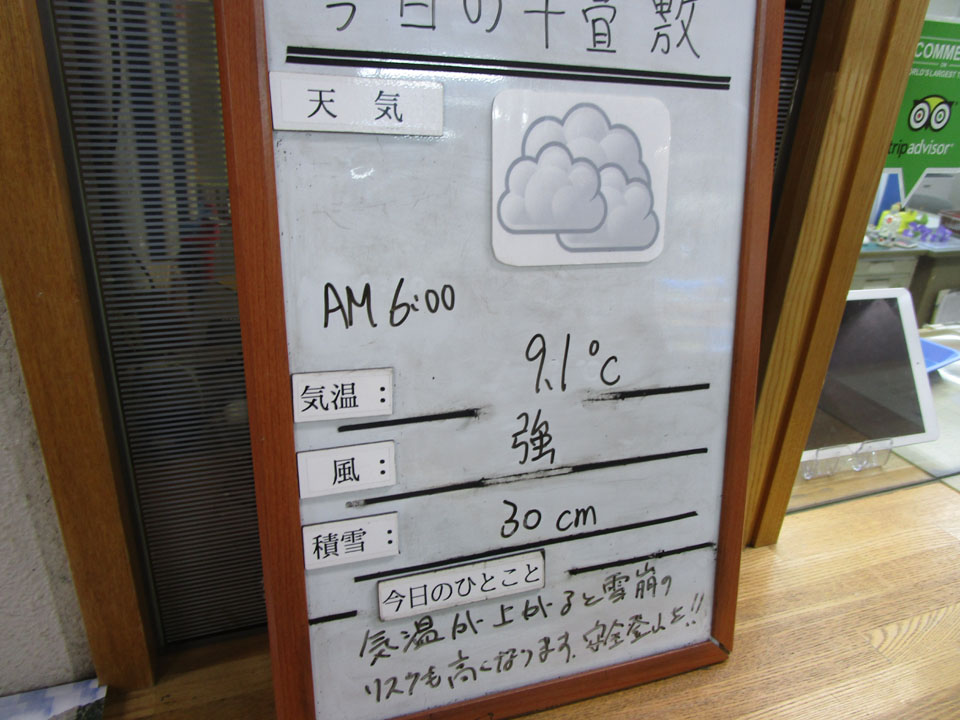 今日の千畳敷
天気
AM 6:00
気温: 9.1℃
風: 強
積雪: 30cm
今日のひとこと
気温が上がると雪崩の
リスクも高くなります. 安全登山を!!
COMME
ON
ORLD'S LARGEST T
tripadvisor